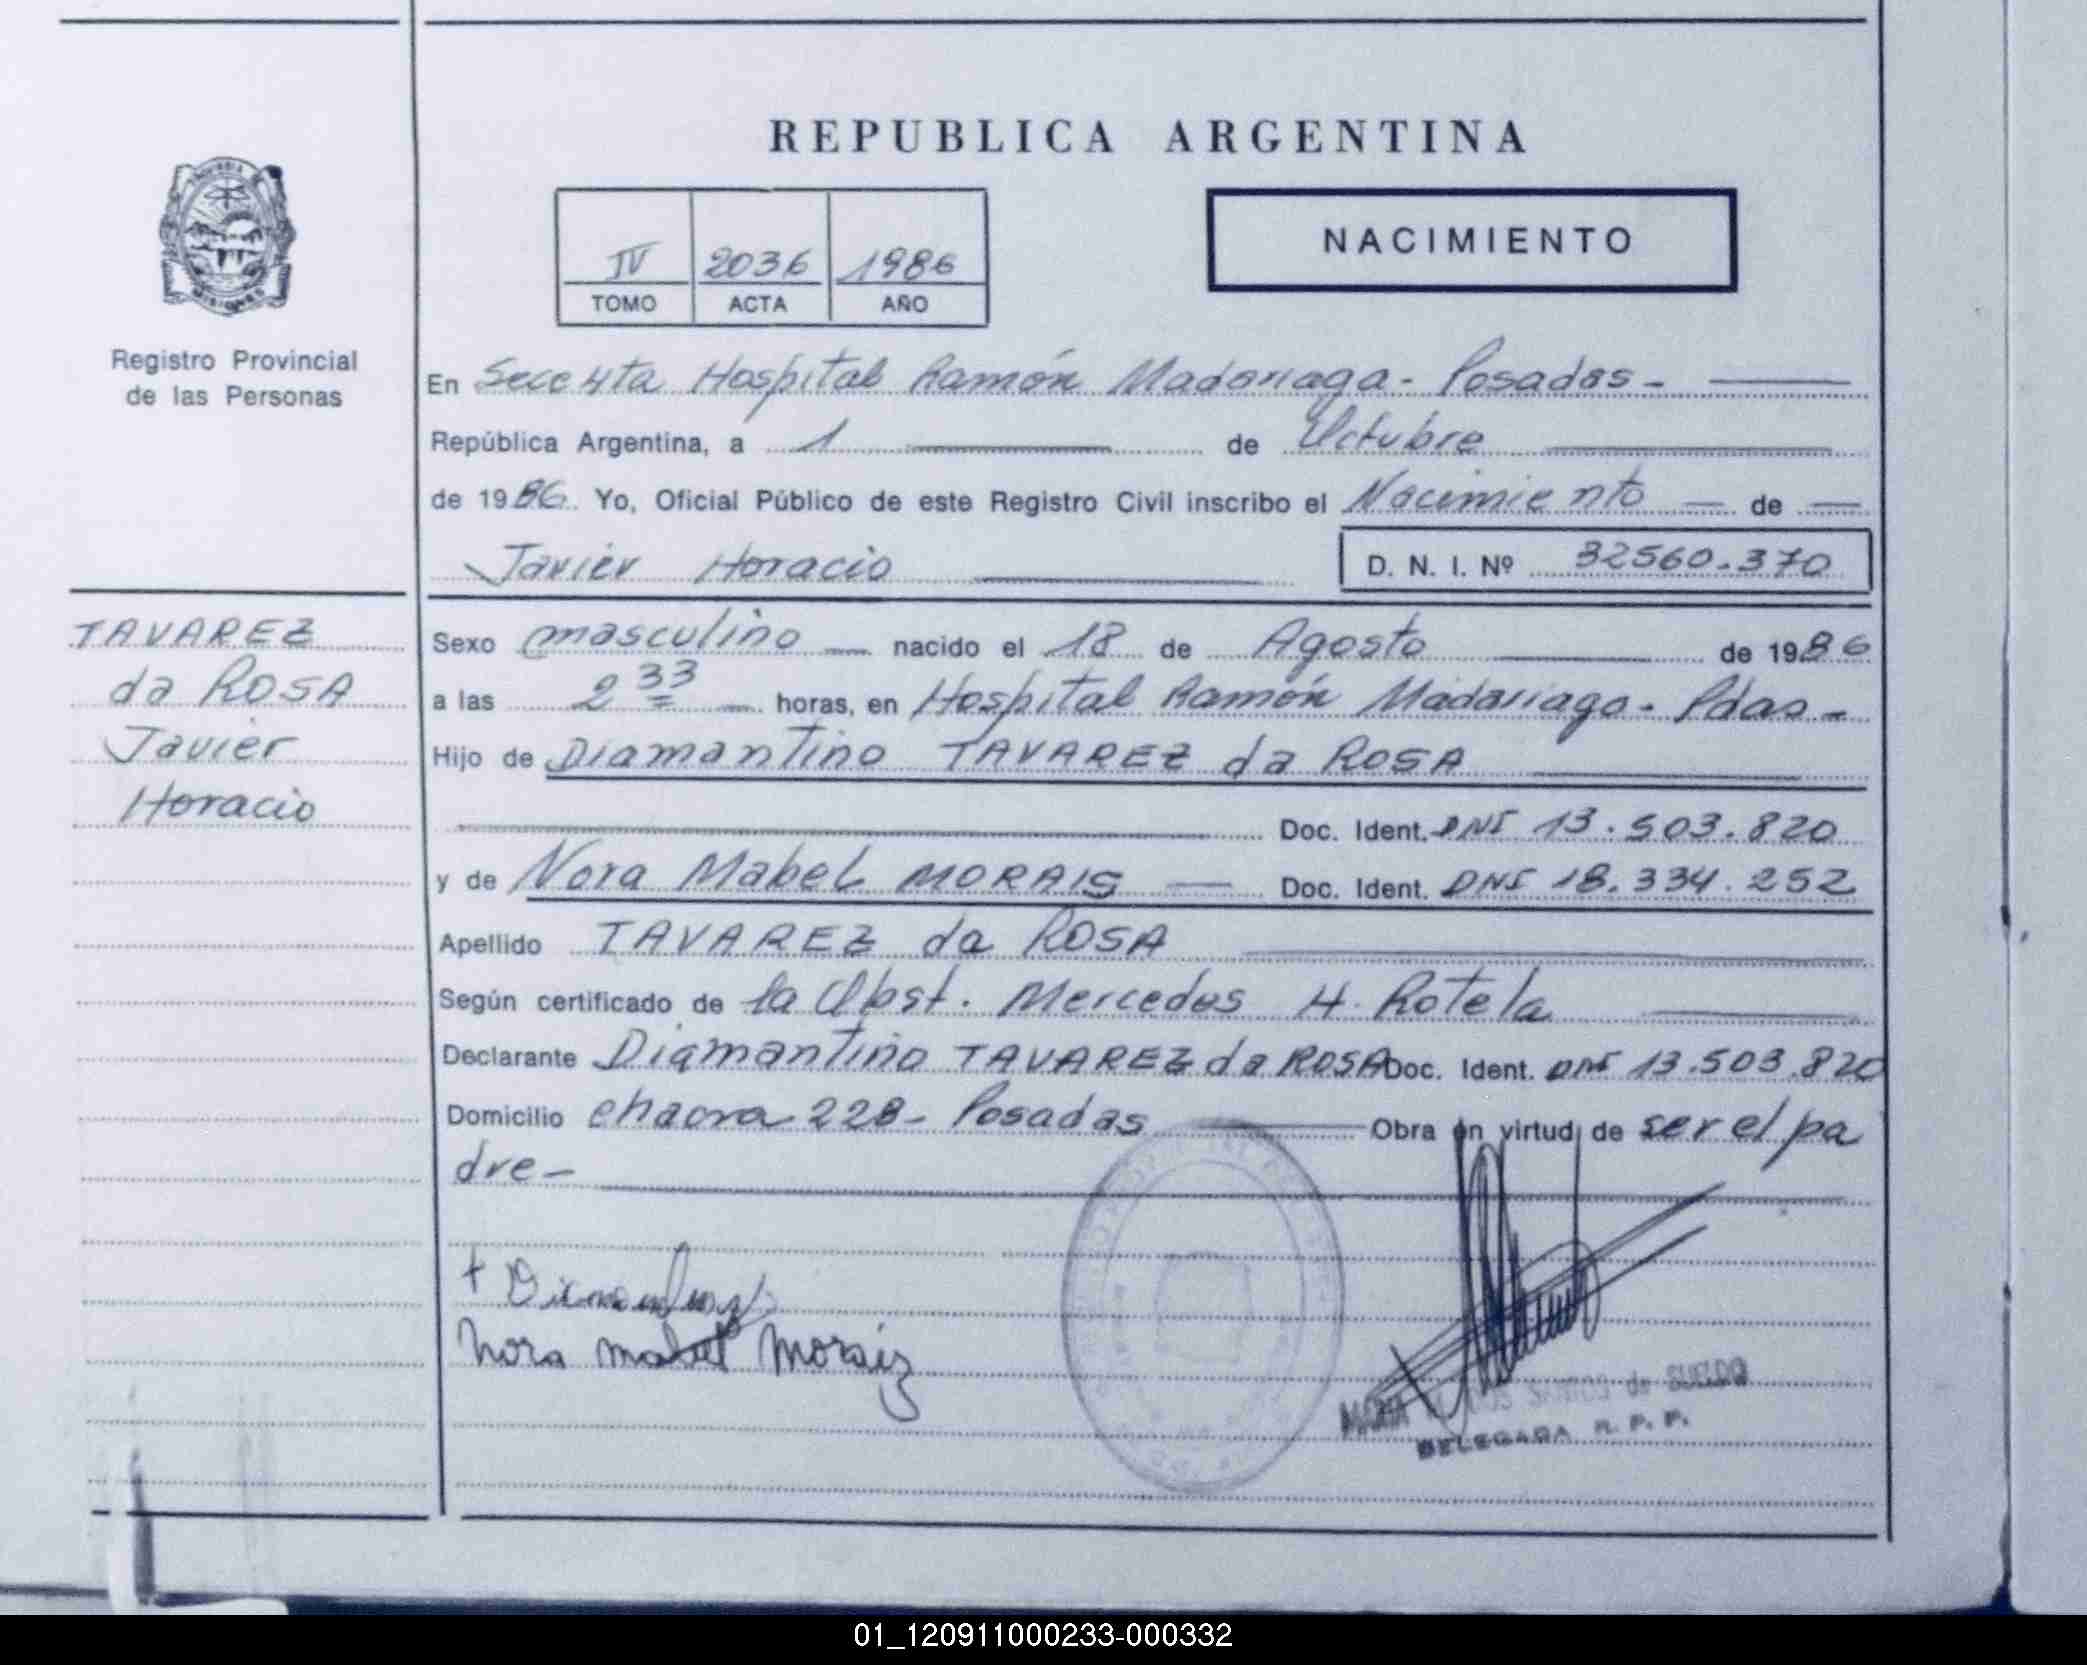 REPUBLICA ARGENTINA
IV 2036 1986
TOMO ACTA AÑO
NACIMIENTO
MISIONES
Registro Provincial
de las Personas
En Hospital Ramón Madariaga - Posadas -
República Argentina, a 1 de Octubre
de 1986. Yo, Oficial Público de este Registro Civil inscribo el Nacimiento de
Javier Horacio D. N. I. Nº 32560.370
TAVAREZ
da ROSA
Javier
Horacio
Sexo masculino nacido el 18 de Agosto de 1986
a las 2 33 horas, en Hospital Ramón Madariaga - Pdas -
Hijo de Diamantino TAVAREZ da ROSA
Doc. Ident. DNI 13.503.820
y de Nora Mabel MORAIS Doc. Ident. DNI 18.334.252
Apellido TAVAREZ da ROSA
Según certificado de la Obst. Mercedes H. Rotela
Declarante Diamantino TAVAREZ da ROSA Doc. Ident. DNI 13.503.820
Domicilio chacra 228 - Posadas Obra en virtud de ser el pa
dre -
Nora Mabel Moraiz
MARIA DOS SANTOS de SUELDO
DELEGADA R. P. P.
01_120911000233-000332